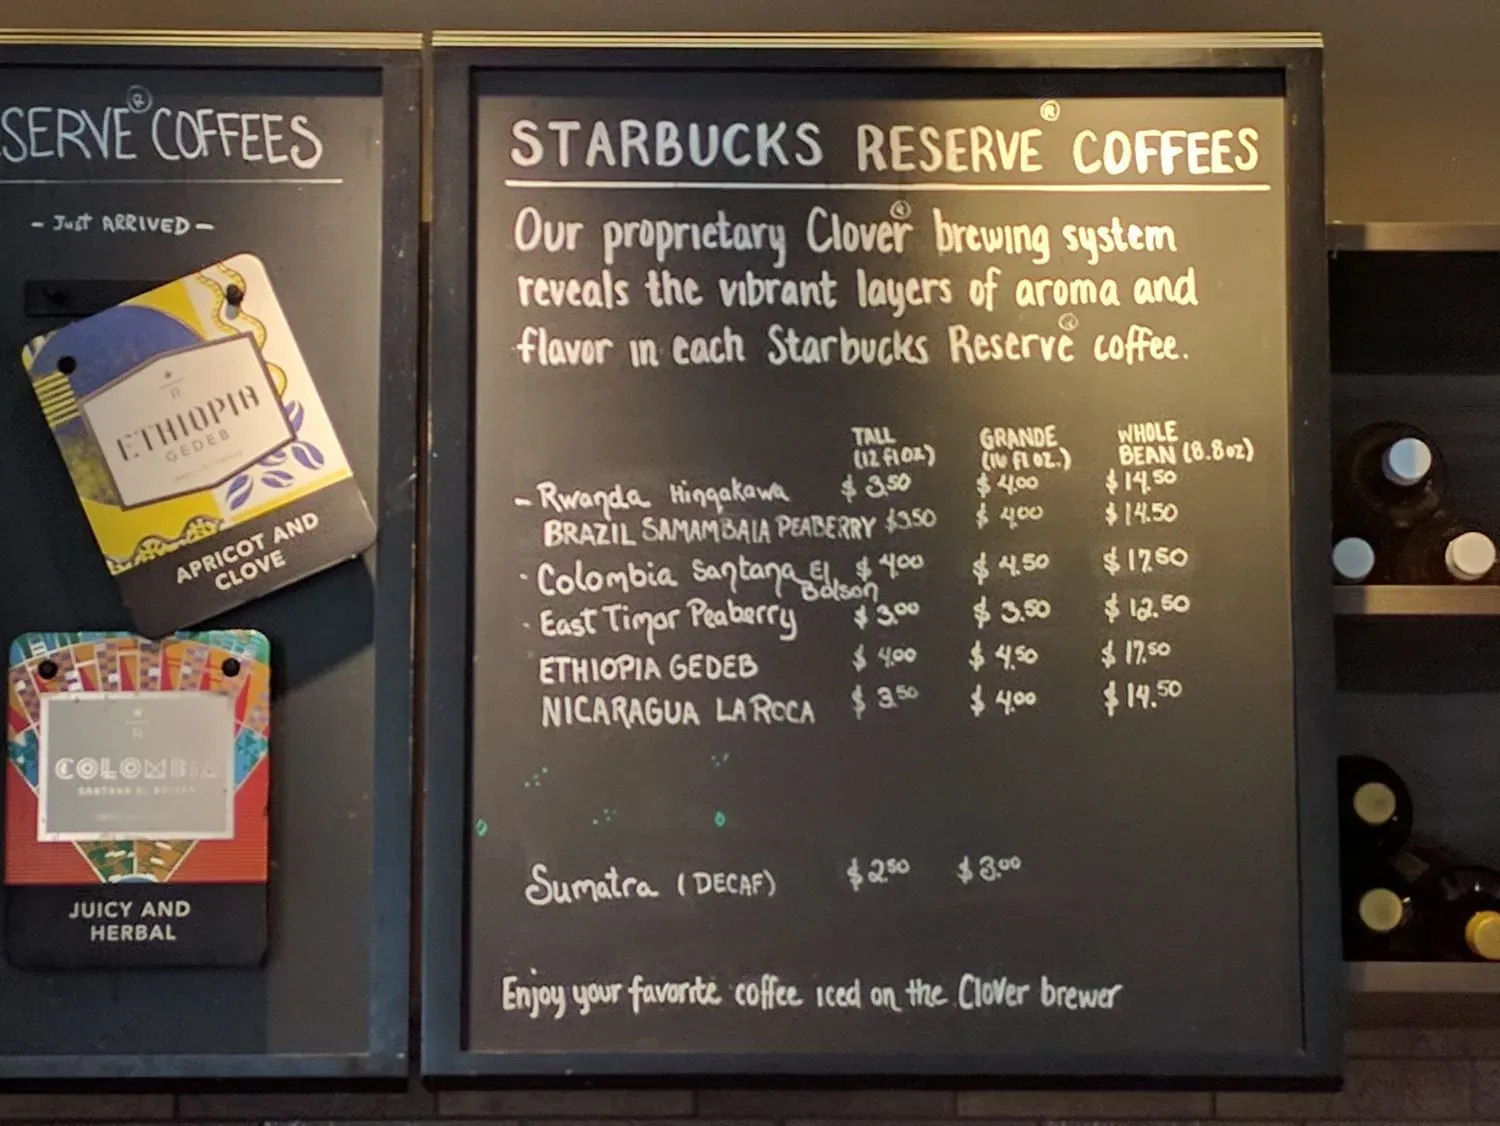 SERVE® COFFEES
- Just ARRIVED -
R
ETHIOPIA
GEDEB
APRICOT AND
CLOVE
R
COLOMBIA
SANTANA EL BOLSON
JUICY AND
HERBAL
STARBUCKS RESERVE® COFFEES
Our proprietary Clover® brewing system
reveals the vibrant layers of aroma and
flavor in each Starbucks Reserve® coffee.
TALL (12 fl oz) GRANDE (16 fl oz.) WHOLE BEAN (8.8oz)
- Rwanda Hingakawa $3.50 $4.00 $14.50
BRAZIL SAMAMBAIA PEABERRY $3.50 $4.00 $14.50
· Colombia Santana El Bolson $4.00 $4.50 $17.50
· East Timor Peaberry $3.00 $3.50 $12.50
ETHIOPIA GEDEB $4.00 $4.50 $17.50
NICARAGUA LA ROCA $3.50 $4.00 $14.50
Sumatra (DECAF) $2.50 $3.00
Enjoy your favorite coffee iced on the Clover brewer